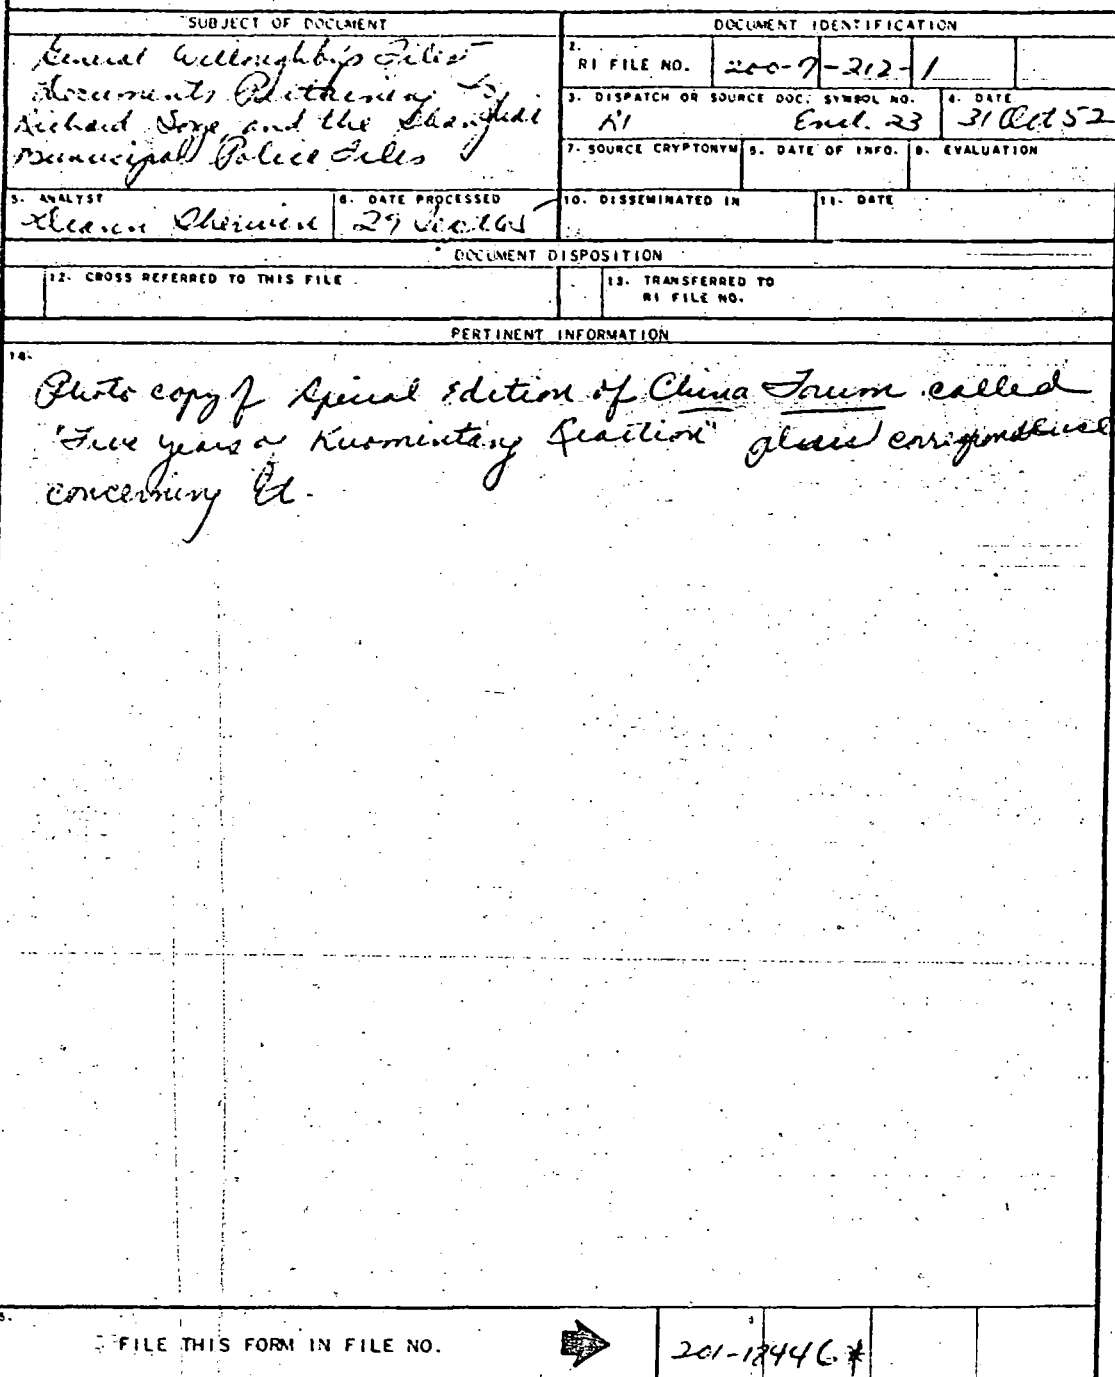 SUBJECT OF DOCUMENT
General Willoughby's Files
Documents Pertaining To
Richard Sorge and the Shanghai
Municipal Police Files
DOCUMENT IDENTIFICATION
2. RI FILE NO. 200-7-212-1
3. DISPATCH OR SOURCE DOC. SYMBOL NO.
Encl. 23
4. DATE
31 Oct 52
7. SOURCE CRYPTONYM
8. DATE OF INFO.
9. EVALUATION
5. ANALYST
6. DATE PROCESSED
29
10. DISSEMINATED IN
11. DATE
DOCUMENT DISPOSITION
12. CROSS REFERRED TO THIS FILE
13. TRANSFERRED TO
RI FILE NO.
PERTINENT INFORMATION
14.
Photo copy of Special Edition of China Forum called
"Five years of Kuomintang Reaction" plus correspondence
concerning it.
FILE THIS FORM IN FILE NO.
201-18446*